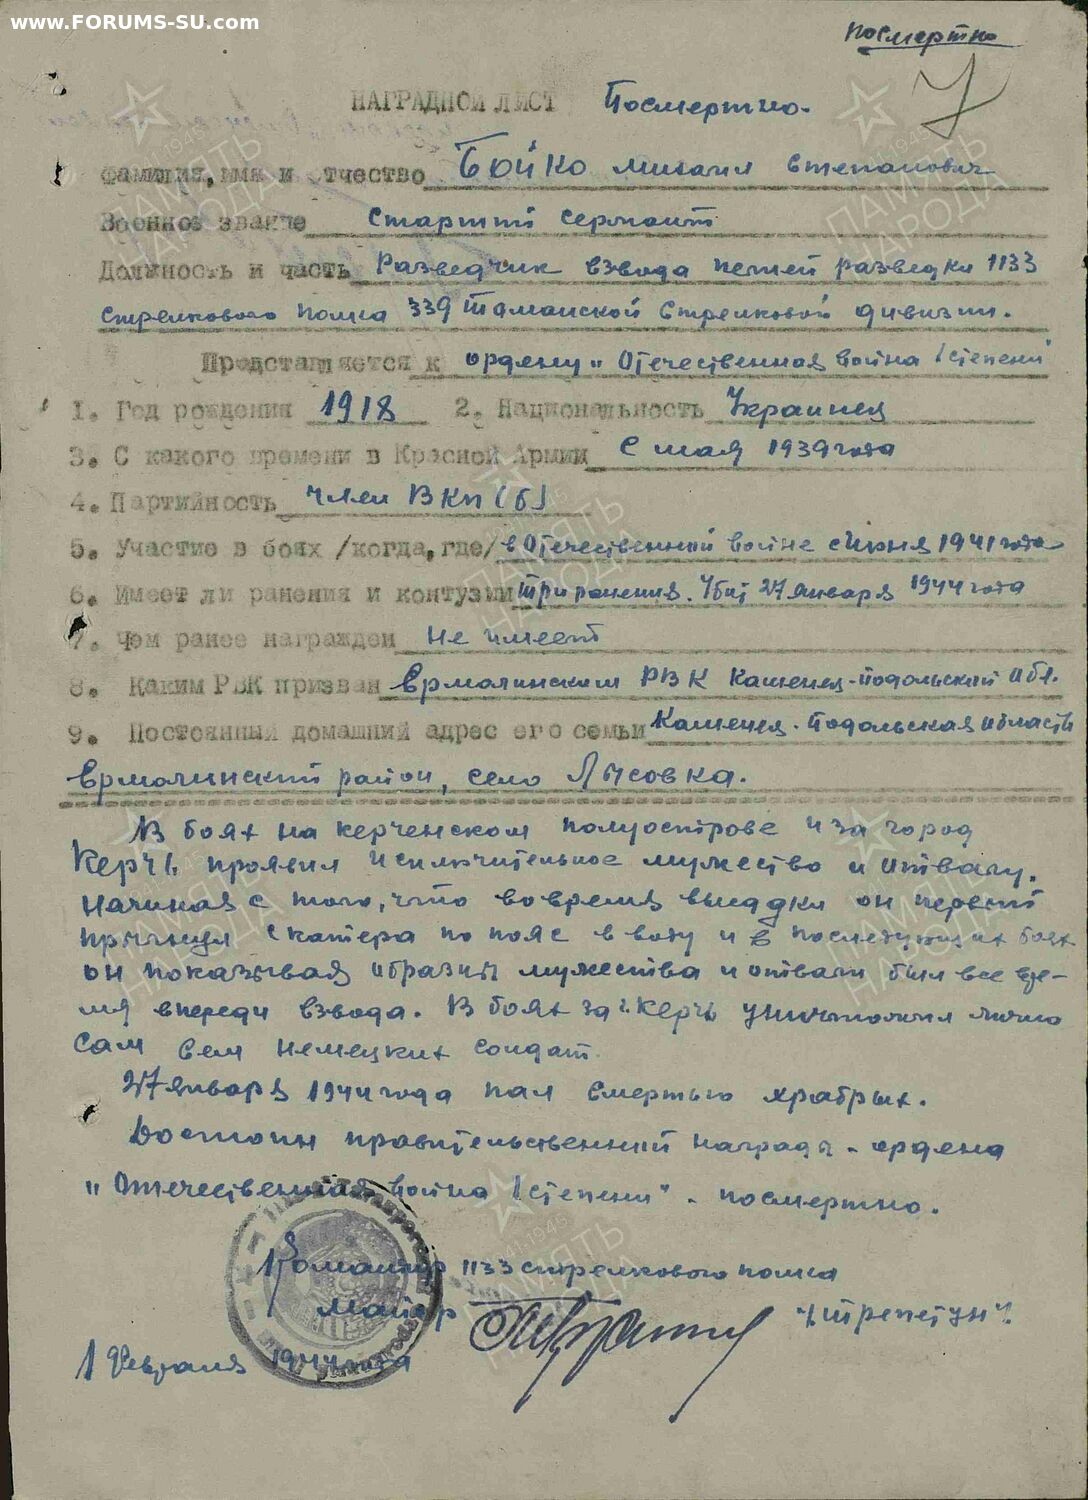 www.FORUMS-SU.com
посмертно
НАГРАДНОЙ ЛИСТ Посмертно.
Фамилия, имя и отчество Бойко Михаил Степанович
Военное звание Старший сержант
Должность и часть Разведчик взвода пешей разведки 1133
стрелкового полка 339 Таманской Стрелковой дивизии.
Представляется к ордену "Отечественная война I степени"
1. Год рождения 1918 2. Национальность Украинец
3. С какого времени в Красной Армии С мая 1939 года
4. Партийность член ВКП(б)
5. Участие в боях /когда, где/ в Отечественной войне с июня 1941 года
6. Имеет ли ранения и контузии три ранения. Убит 27 января 1944 года
7. Чем ранее награжден Не имеет
8. Каким РВК призван Ермолинским РВК Каменец-Подольский обл.
9. Постоянный домашний адрес его семьи Каменец-Подольская область
Ермолинский район, село Лысовка.
В боях на керченском полуострове и за город
Керчь проявил исключительное мужество и отвагу.
Начиная с того, что во время высадки он первый
прыгнул с катера по пояс в воду и в последующих боях
он показывая образцы мужества и отваги был все вре-
мя впереди взвода. В боях за г. Керчь уничтожил лично
сам сем немецких солдат.
27 января 1944 года пал смертью храбрых.
Достоин правительственный награды - ордена
"Отечественная война I степени" - посмертно.
Командир 1133 стрелкового полка
майор "/Трепетун/"
1 февраля 1944 года
ПАМЯТЬ НАРОДА
1941-1945